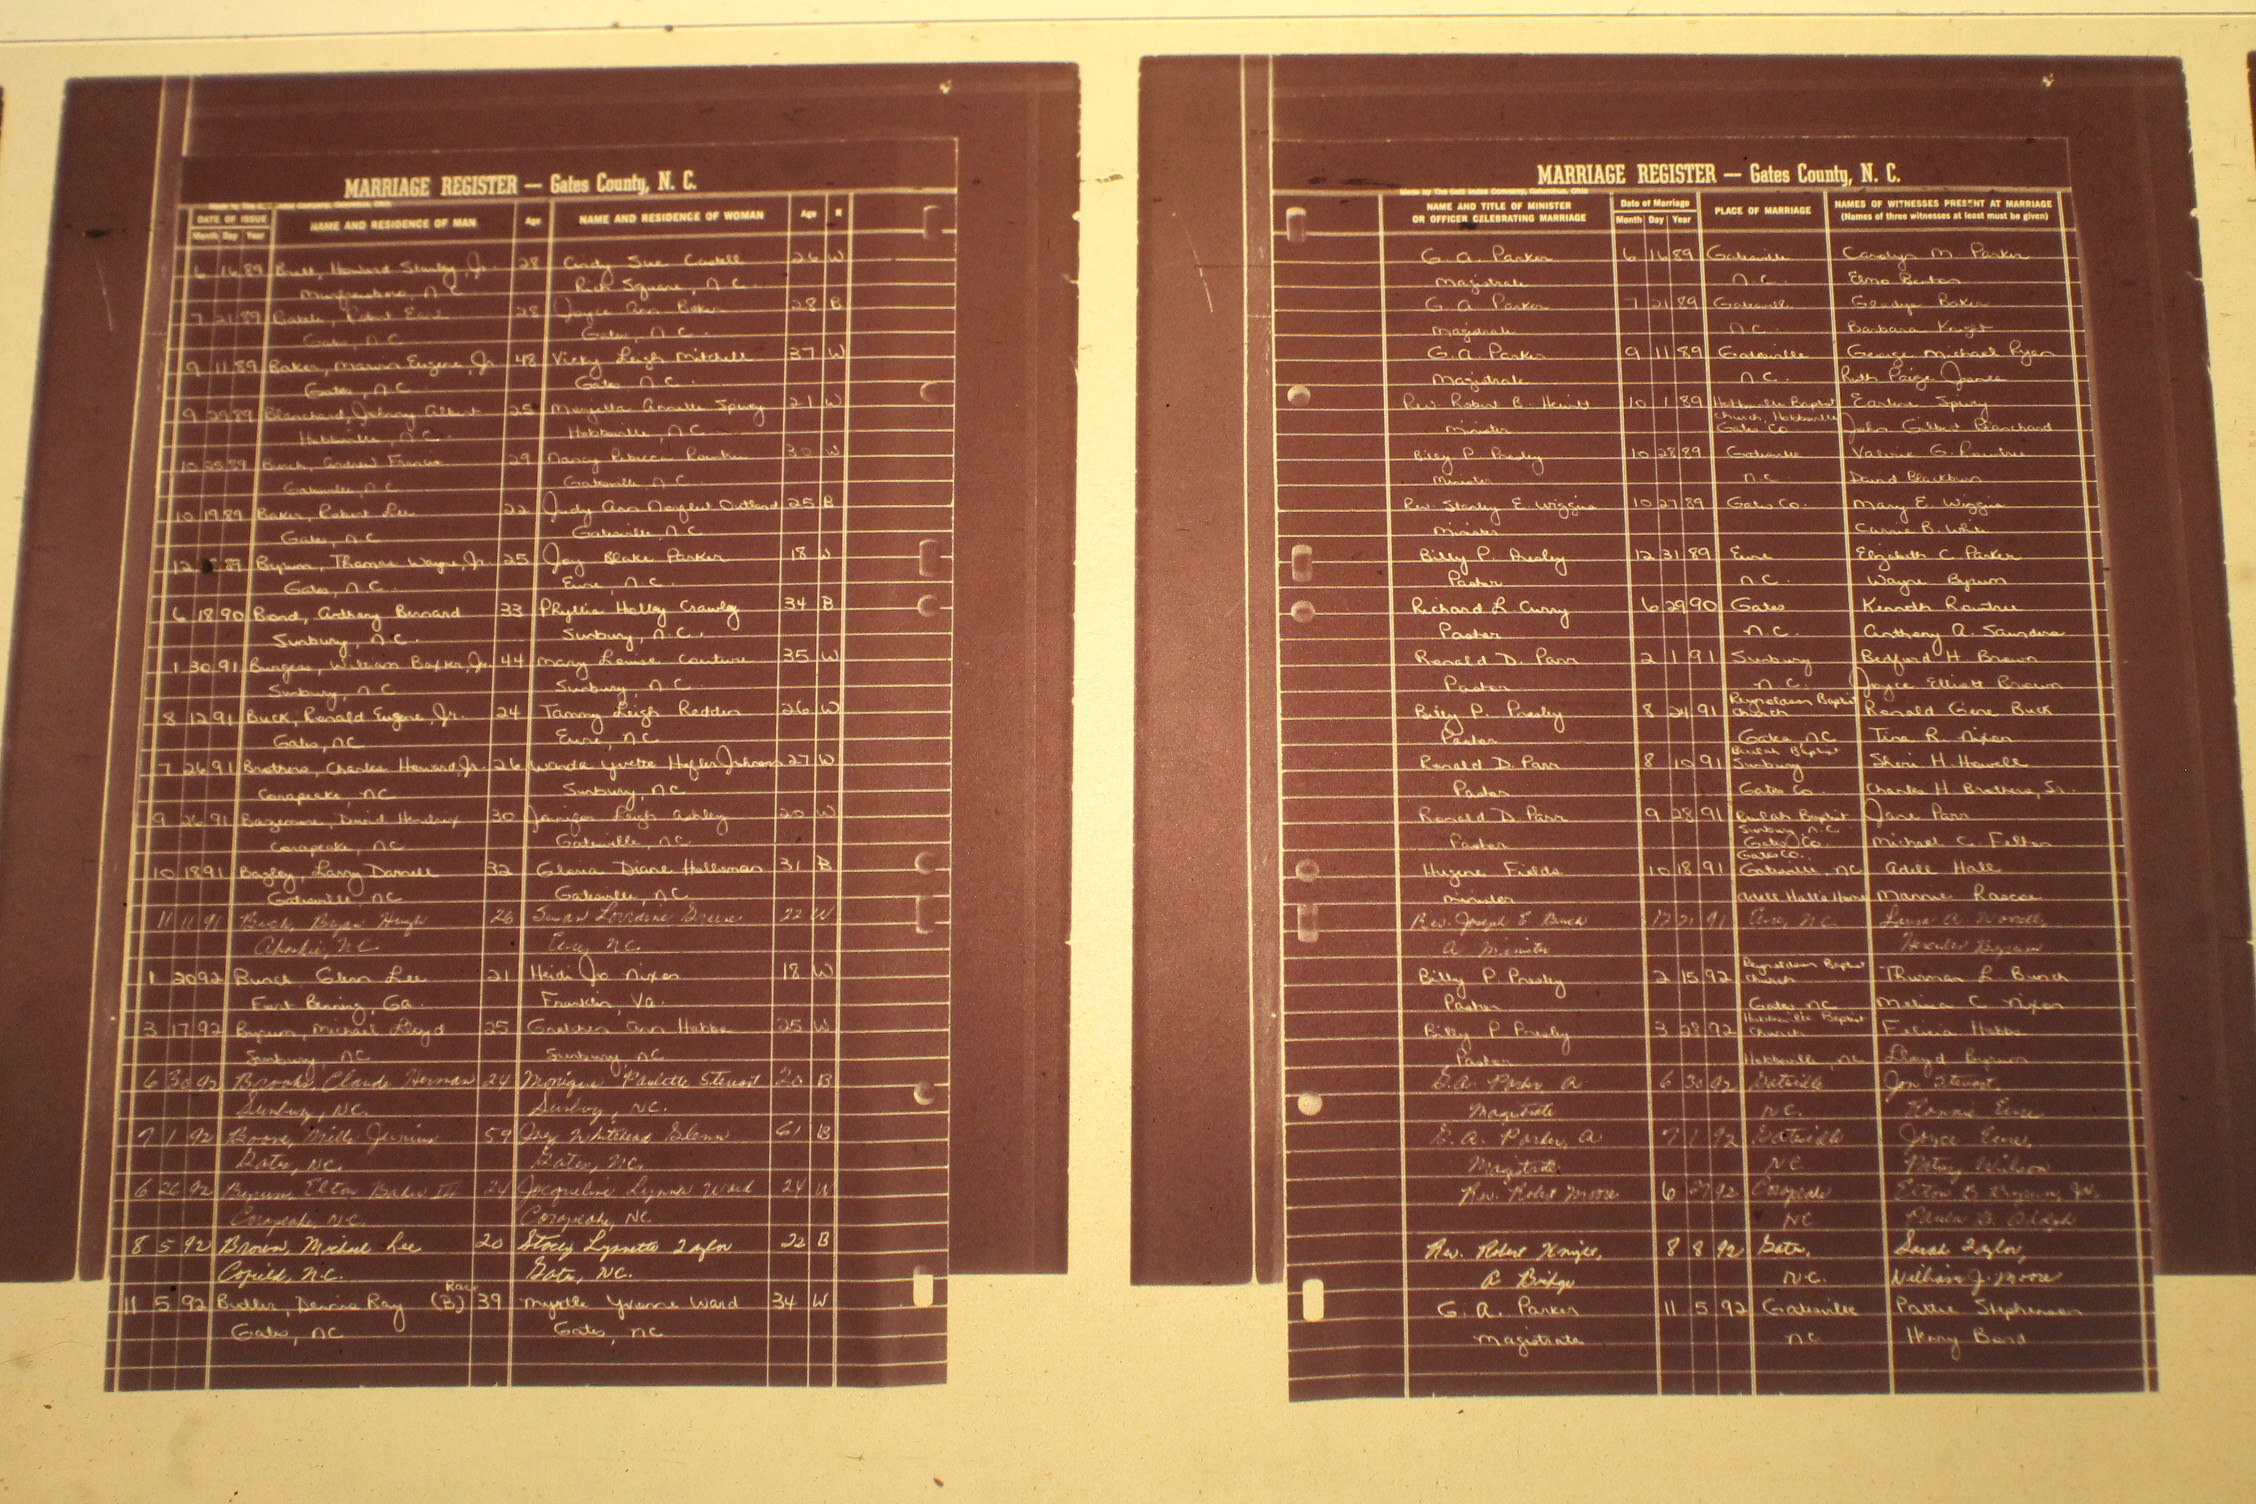 MARRIAGE REGISTER — Gates County, N. C.
DATE OF ISSUE
Month Day Year
NAME AND RESIDENCE OF MAN
Age
NAME AND RESIDENCE OF WOMAN
Age
R
6 16 89 Britt, Howard Stanley, Jr. 28 Cindy Sue Castell 26 W
Murfreesboro, N.C. Rich Square, N.C.
7 21 89 Robert Earl 28 Joyce Ann Baker 28 B
Gates, N.C. Gates, N.C.
9 11 89 Baker, Marvin Eugene, Jr. 48 Vicky Leigh Mitchell 37 W
Gates, N.C. Gates N.C.
9 29 89 Blanchard, Johnny Albert 25 Annette Spivey 21 W
Hobbsville, N.C. Hobbsville, N.C.
10 25 89 Andrew Francis 29 Nancy Rebecca Rountree 30 W
Gatesville, N.C. Gatesville, N.C.
10 19 89 Baker, Robert Lee 22 Judy Ann Outland 25 B
Gates, N.C. Gatesville, N.C.
12 89 Byrum, Thomas Wayne, Jr. 25 Joy Blake Parker 18 W
Gates, N.C. Eure, N.C.
6 18 90 Bond, Anthony Bernard 33 Phyllis Holley Crawley 34 B
Sunbury, N.C. Sunbury, N.C.
1 30 91 Burgess, William Baxter, Jr. 44 Mary Louise Couture 35 W
Sunbury, N.C. Sunbury, N.C.
8 12 91 Buck, Ronald Eugene, Jr. 24 Tammy Leigh Redden 26 W
Gates, NC Eure, NC
7 26 91 Brothers, Charles Howard, Jr. 26 Wanda Yvette Hofler Johnson 27 W
Corapeake, NC Sunbury, NC
9 26 91 Bazemore, David Hendrix 30 Jennifer Leigh Ashley 20 W
Corapeake, NC Gatesville, NC
10 18 91 Bagley, Larry Darnell 32 Gloria Diane Holloman 31 B
Gatesville, NC Gatesville, NC
11 11 91 Bryan Hugh 26 Susan Lorraine Greene 22 W
Ahoskie, N.C. Eure, N.C.
1 20 92 Bunch Glenn Lee 21 Heidi Jo Nixon 18 W
Fort Benning, Ga. Franklin, Va.
3 17 92 Byrum, Michael Lloyd 25 Gretchen Ann Hobbs 25 W
Sunbury, NC Sunbury, NC
6 30 92 Brooks, Claude Herman 24 Monique Paulette Stewart 20 B
Sunbury, NC. Sunbury, NC.
7 1 92 Boone, Mills Junious 59 Whitehead Glenn 61 B
Gates, NC. Gates, NC.
6 26 92 Byrum, Elton Baker III 24 Jacqueline Lynne Ward 24 W
Corapeake, N.C. Corapeake, NC.
8 5 92 Brown, Michael Lee 20 Stacey Lynnette Taylor 22 B
Cofield, N.C. Gates, NC.
Race
11 5 92 Butler, Dennis Ray (B) 39 Myrtle Yvonne Ward 34 W
Gates, NC Gates, NC
MARRIAGE REGISTER — Gates County, N. C.
Made by The Cott Index Company, Columbus, Ohio
NAME AND TITLE OF MINISTER
OR OFFICER CELEBRATING MARRIAGE
Date of Marriage
Month Day Year
PLACE OF MARRIAGE
NAMES OF WITNESSES PRESENT AT MARRIAGE
(Names of three witnesses at least must be given)
G. A. Parker 6 16 89 Gatesville Carolyn M. Parker
Magistrate N.C. Elmo Benton
G. A. Parker 7 21 89 Gatesville Gladys Baker
Magistrate N.C. Barbara Knight
G. A. Parker 9 11 89 Gatesville George Michael Ryan
Magistrate N.C. Ruth Paige
Rev. Robert B. Hewitt 10 1 89 Hobbsville Baptist Earline Spivey
Church, Hobbsville
Minister Gates Co John Gilbert Blanchard
Billy P. Presley 10 28 89 Gatesville Valerie G. Rountree
Minister N.C. David Blackburn
Rev. Stanley E. Wiggins 10 27 89 Gates Co. Mary E. Wiggins
Minister Carrie B. White
Billy P. Presley 12 31 89 Eure Elizabeth C. Parker
Pastor N.C. Wayne Byrum
Richard L. Curry 6 29 90 Gates Kenneth Rountree
Pastor N.C. Anthony A. Saunders
Ronald D. Parr 2 1 91 Sunbury Bedford H. Brown
Pastor N.C. Joyce Elliott Brown
Reynoldson Baptist
Billy P. Presley 8 24 91 Church Ronald Gene Buck
Pastor Gates, NC Tina R. Nixon
Beulah Baptist
Ronald D. Parr 8 10 91 Sunbury Sheri H. Howell
Pastor Gates Co. Charles H Brothers, Sr.
Ronald D. Parr 9 28 91 Beulah Baptist Jane Parr
Sunbury N.C.
Pastor Gates Co. Michael C. Felton
Gates Co.
Hugene Fields 10 18 91 Gatesville, NC Adell Hall
Minister Adell Hall's Home Mannie Rascoe
Rev. Joseph E. 12 21 91 Eure, N.C.
A Minister Byrum
Reynoldson Baptist
Billy P Presley 2 15 92 Church Thurman L. Bunch
Pastor Gates, NC Melissa C Nixon
Hobbsville Baptist
Billy P Presley 3 28 92 Church Felicia Hobbs
Pastor Hobbsville, NC Lloyd Byrum
G.A. Parker A 6 30 92 Gatesville Jon Stewart
Magistrate NC. Ronnie Eure
G. A. Parker, A 7 1 92 Gatesville Joyce Eure,
Magistrate NC Patsy Wilson
Rev. Robert Moore 6 27 92 Corapeake Elton B Byrum, Jr.
NC Paula B.
Rev. Robert Knight, 8 8 92 Gates, Sarah Taylor,
A Bridge N.C. William J. Moore
G. A. Parker 11 5 92 Gatesville Pattie Stephenson
Magistrate N.C. Henry Bond